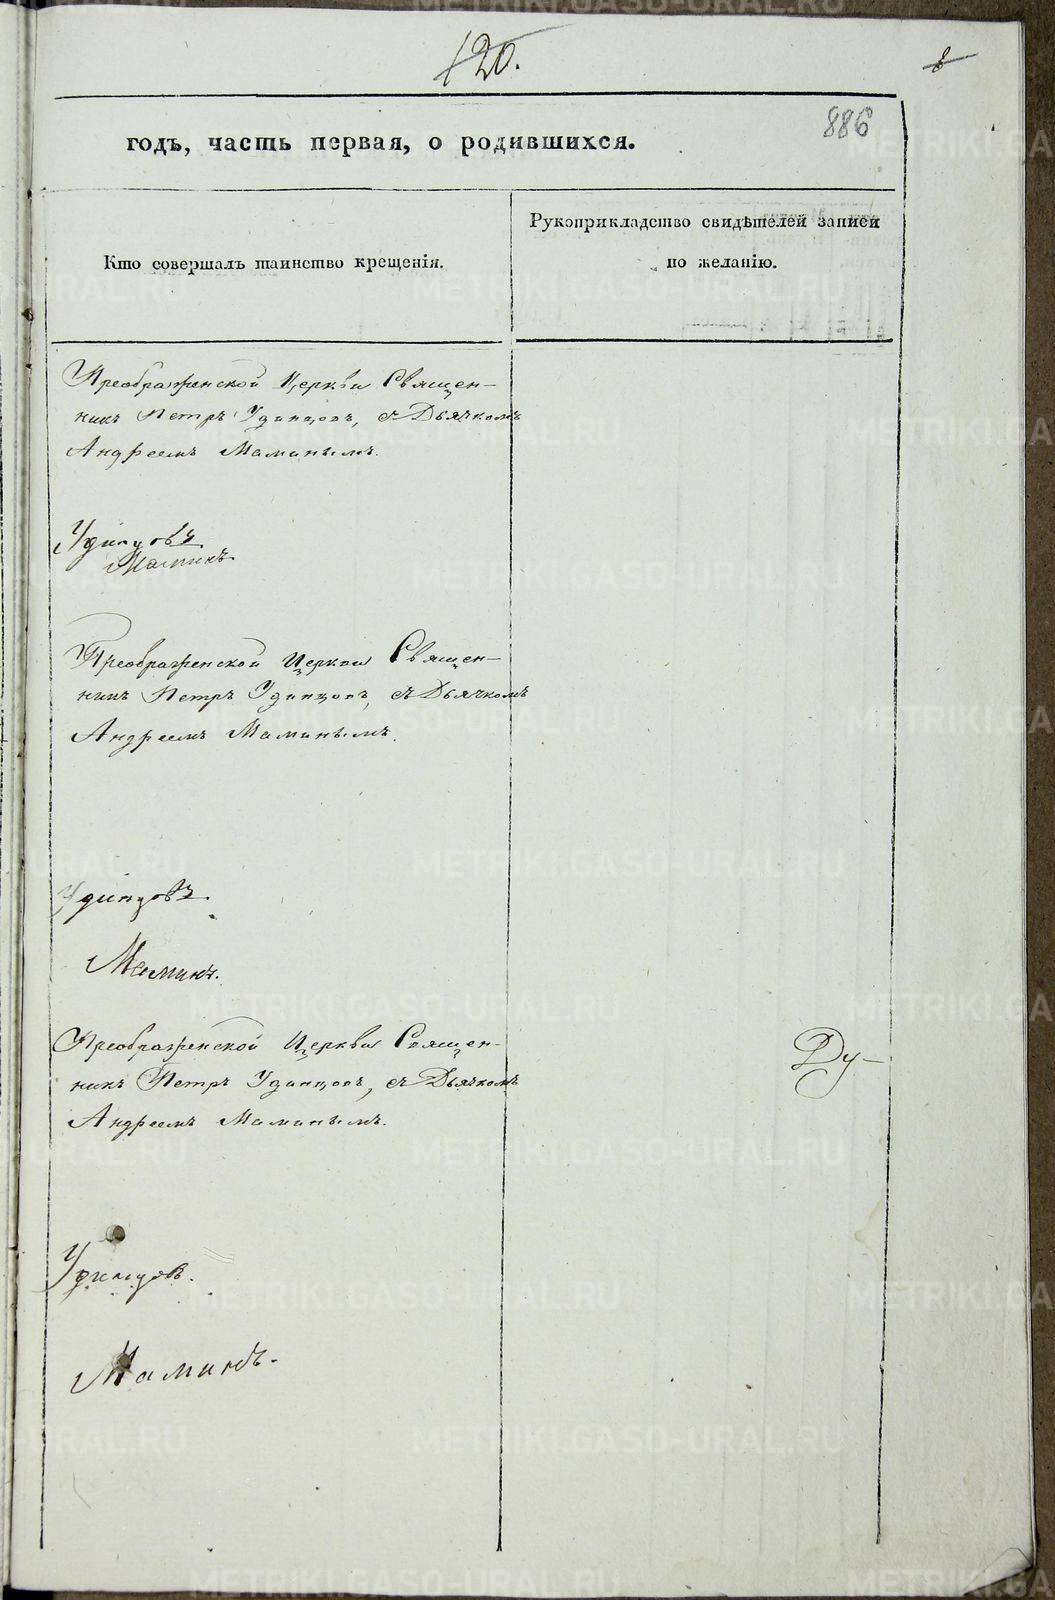 120.
8
886
годъ, часть первая, о родившихся.
Кто совершалъ таинство крещенія.
Рукоприкладство свидѣтелей записи
по желанію.
Преображенской Церкви Священ-
никъ Петръ Удинцовъ, съ Дьячкомъ
Андреемъ Маминымъ.
Удинцовъ
Маминъ.
Преображенской Церкви Священ-
никъ Петръ Удинцовъ, съ Дьячкомъ
Андреемъ Маминымъ.
Удинцовъ.
Маминъ.
Преображенской Церкви Священ-
никъ Петръ Удинцовъ, съ Дьячкомъ
Андреемъ Маминымъ.
Ду-
Удинцовъ.
Маминъ.
METRIKI.GASO-URAL.RU